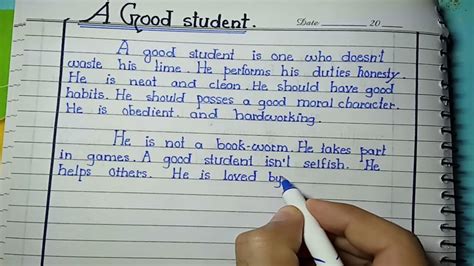 A Good student.
Date 20
A good student is one who doesn't
waste his time. He performs his duties honesty.
He is neat and clean. He should have good
habits. He should posses a good moral character.
He is obedient and hardworking.
He is not a book-worm. He takes part
in games. A good student isn't selfish. He
helps others. He is loved by